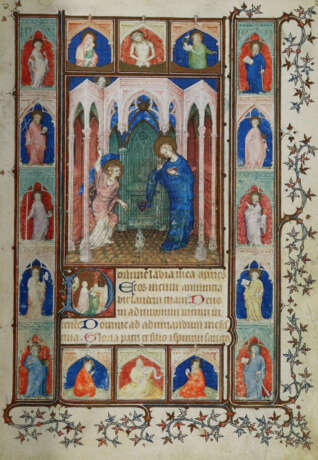 Domine labia mea aperies
Et os meum annuncia
bit laudem tuam Deus
in adiutorium meum in
tende Domine ad adiuvandum me festi
na Gloria patri et filio et spiritui sancto